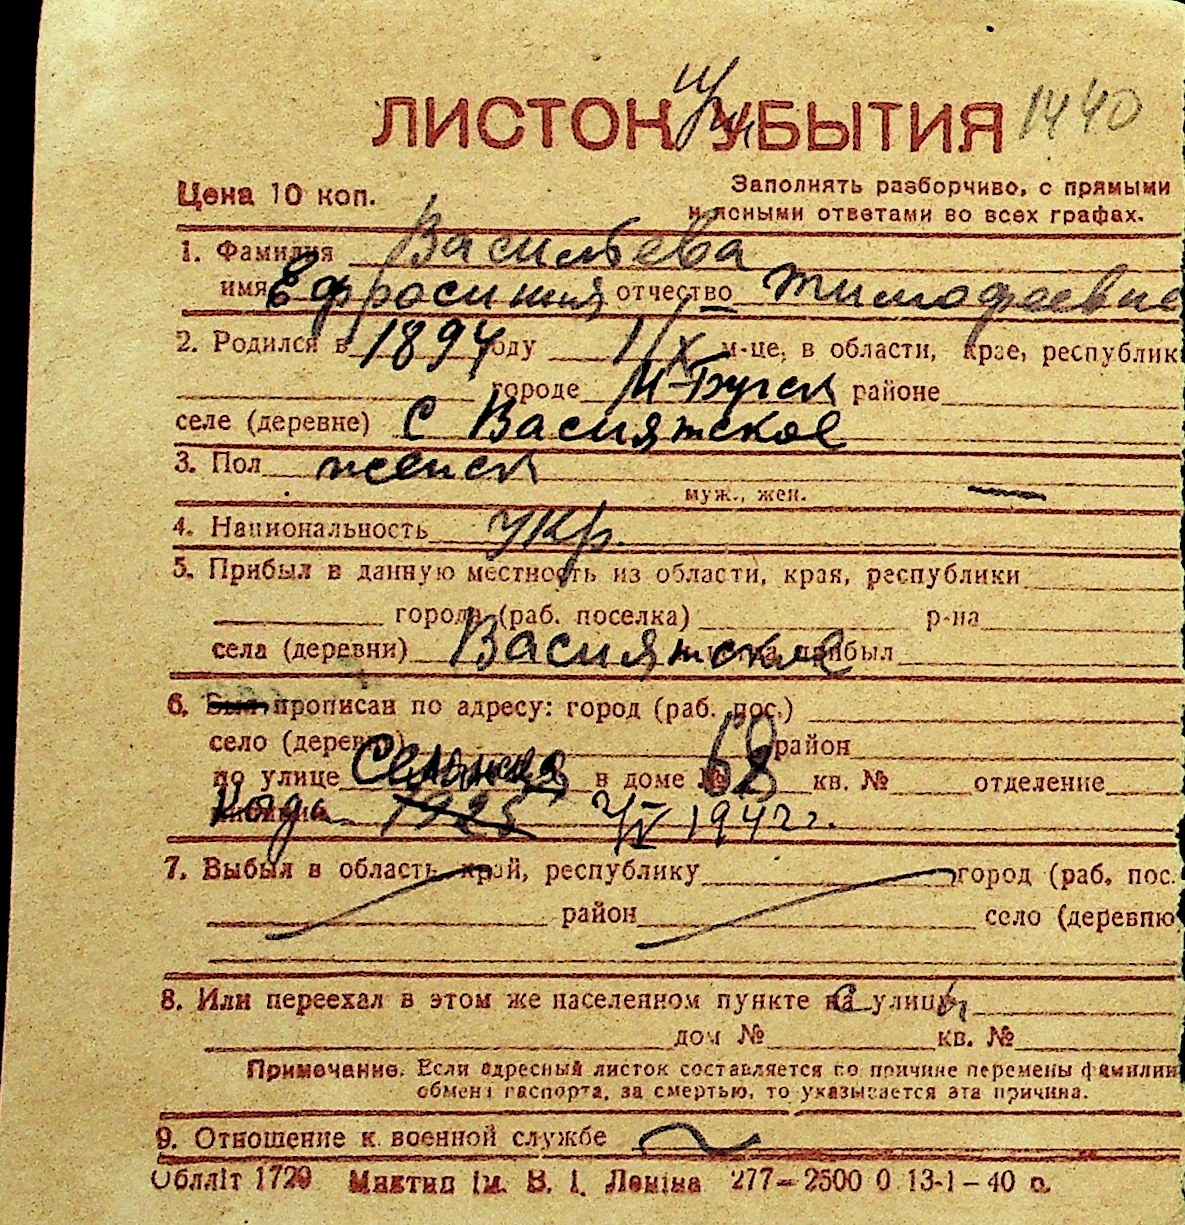 ЛИСТОК УБЫТИЯ 1440
Цена 10 коп.
Заполнять разборчиво, с прямыми
и ясными ответами во всех графах.
1. Фамилия Васильева
имя Ефросиния отчество Тимофеевна
2. Родился в 1894 году 1/X м-це, в области, крае, республик
городе районе
селе (деревне) с Васиятское
3. Пол женск
муж., жен. —
4. Национальность укр.
5. Прибыл в данную местность из области, края, республики
города (раб. поселка) р-на
села (деревни) Васиятское прибыл
6. Был прописан по адресу: город (раб. пос.)
село (деревня) район
по улице в доме № 68 кв. № отделение
1925 1942 г.
7. Выбыл в область, край, республику город (раб. пос.
район село (деревню
8. Или переехал в этом же населенном пункте с улицы
дом № кв. №
Примечание. Если адресный листок составляется по причине перемены фамилии
обмена паспорта, за смертью, то указывается эта причина.
9. Отношение к военной службе
Облліт 1729 Миктип ім. В. І. Леніна 277—2500 0 13-1—40 р.